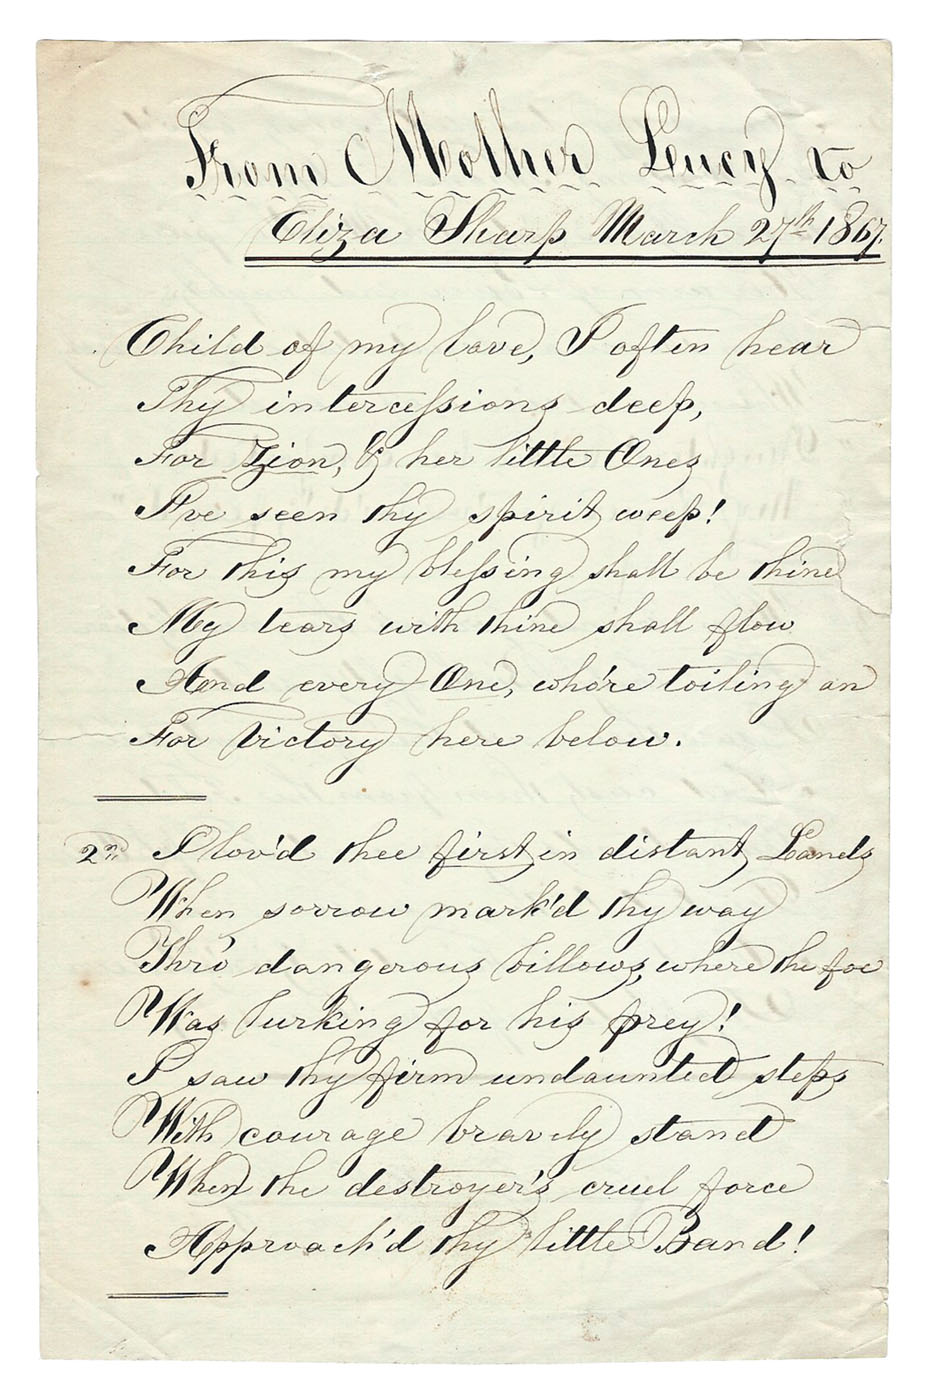 From Mother Lucy to
Eliza Sharp March 27th 1867.
Child of my love, I often hear
Thy intercessions deep,
For Zion, & her little Ones
I've seen thy spirit weep!
For this my blessing shall be thine
My tears with thine shall flow
And every One, who're toiling on
For Victory here below.
2nd I lov'd thee first in distant Lands
When sorrow mark'd thy way
Thro' dangerous billows, where the foe
Was lurking for his prey!
I saw thy firm undaunted steps
With courage bravely stand
When the destroyer's cruel force
Approach'd thy little Band!